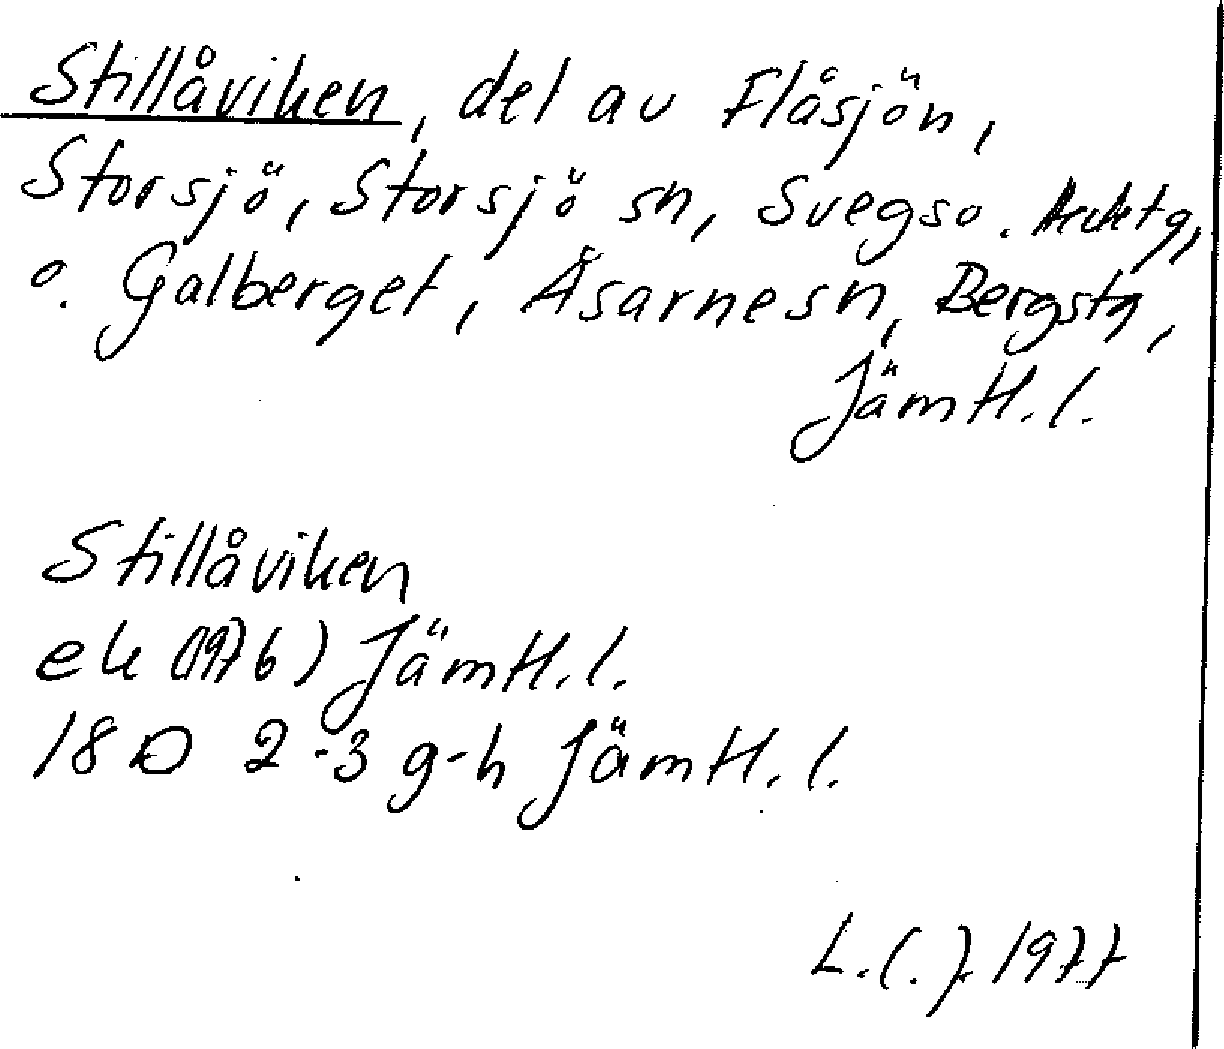 Stillåviken, del av Flåsjön,
Storsjö, Storsjö sn, Svegs o.
o. Galberget, Åsarne sn, Bergs tg,
Jämtl. l.
Stillåviken
ek (1976) Jämtl. l.
18 D 2-3 g-h Jämtl. l.
1977